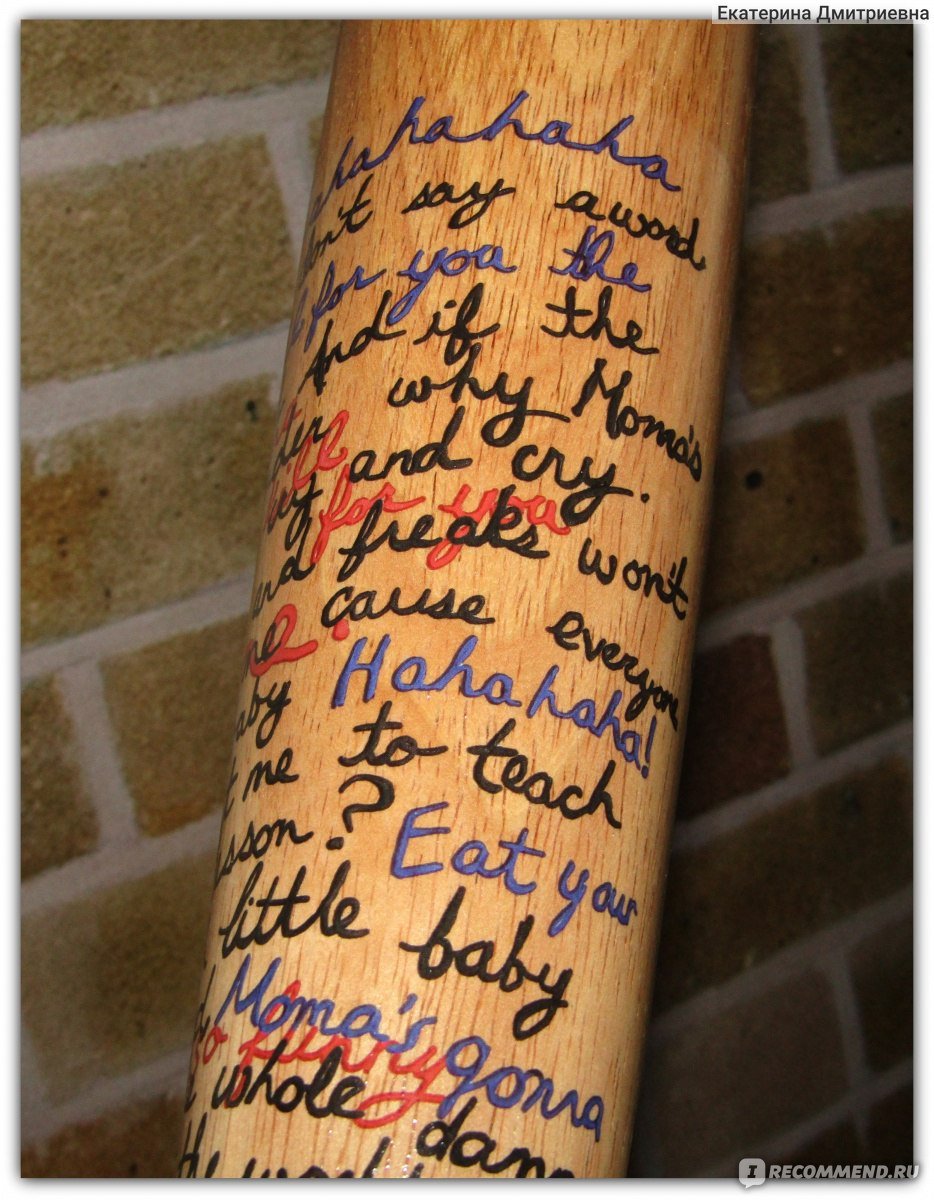 Екатерина Дмитриевна
hahahaha
say a word
for you the
And if the
why Moma's
and cry.
for you
freaks won't
cause everyone
Hahahaha!
me to teach
? Eat your
little baby
Moma's gonna
funny
whole damn
I RECOMMEND.RU